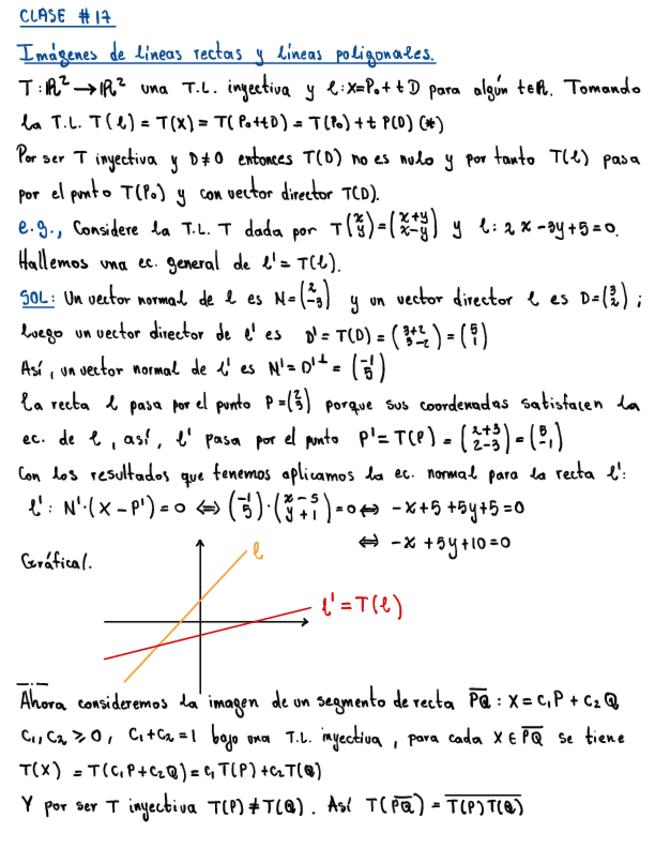 CLASE #17
Imágenes de líneas rectas y líneas poligonales.
T:ℝ²→ℝ² una T.L. inyectiva y ℓ:X=P₀+tD para algún t∈ℝ. Tomando
la T.L. T(ℓ)=T(X)=T(P₀+tD)=T(P₀)+t P(D) (*)
Por ser T inyectiva y D≠0 entonces T(D) no es nulo y por tanto T(ℓ) pasa
por el punto T(P₀) y con vector director T(D).
e.g., Considere la T.L. T dada por T(x y)=(x+y x-y) y ℓ: 2x-3y+5=0.
Hallemos una ec. general de ℓ'=T(ℓ).
SOL: Un vector normal de ℓ es N=(2 -3) y un vector director ℓ es D=(3 2);
luego un vector director de ℓ' es D'=T(D)=(3+2 3-2)=(5 1)
Así, un vector normal de ℓ' es N'=D'⊥=(-1 5)
La recta ℓ pasa por el punto P=(2 3) porque sus coordenadas satisfacen la
ec. de ℓ, así, ℓ' pasa por el punto P'=T(P)=(2+3 2-3)=(5 -1)
Con los resultados que tenemos aplicamos la ec. normal para la recta ℓ':
ℓ': N'·(X-P')=0 ⇔ (-1 5)·(x-5 y+1)=0 ⇔ -x+5+5y+5=0
⇔ -x+5y+10=0
Gráfical.
ℓ
ℓ'=T(ℓ)
Ahora consideremos la imagen de un segmento de recta P̅Q̅: X=C₁P+C₂Q
C₁,C₂⩾0, C₁+C₂=1 bajo una T.L. inyectiva, para cada X∈P̅Q̅ se tiene
T(X)=T(C₁P+C₂Q)=C₁T(P)+C₂T(Q)
Y por ser T inyectiva T(P)≠T(Q). Así T(P̅Q̅)=T̅(̅P̅)̅T̅(̅Q̅)̅